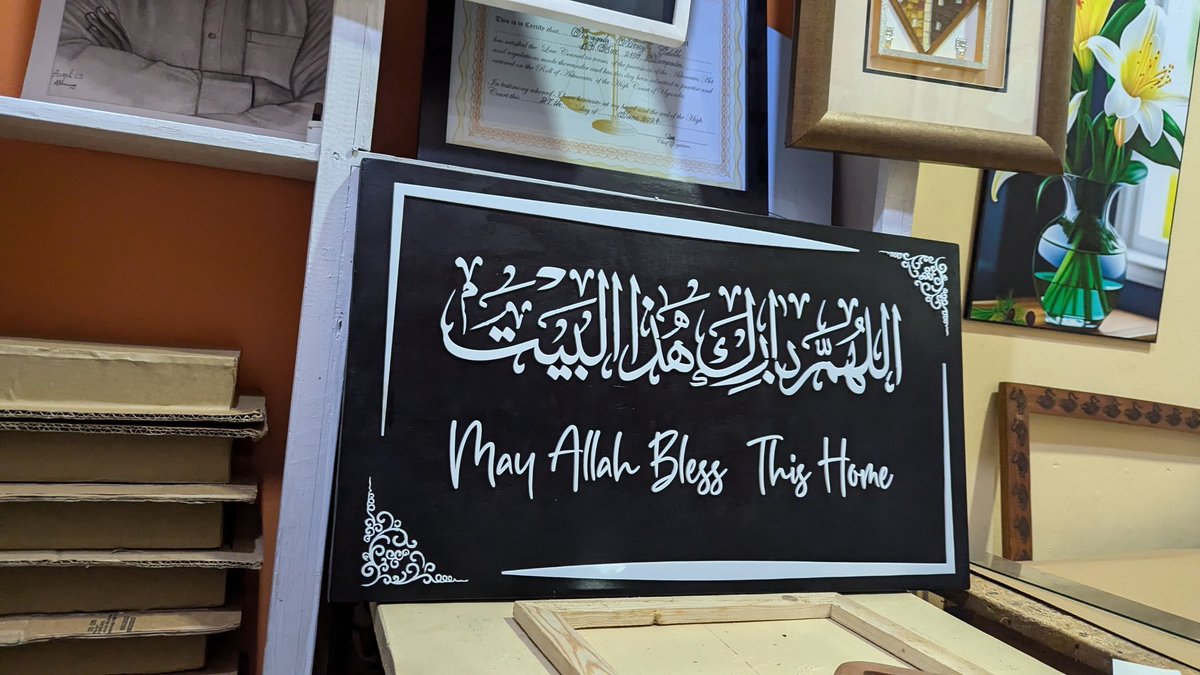 This is to Certify that
has satisfied the Law Council in terms of the provisions of the Advocates Act
and regulations made thereunder and has this day been admitted to practise and
entered on the Roll of Advocates, of the High Court of Uganda.
In testimony whereof, I have hereunto set my hand and the seal of the High
Court this day of
اللهُمَّ بارِك هٰذا البَيْت
May Allah Bless This Home